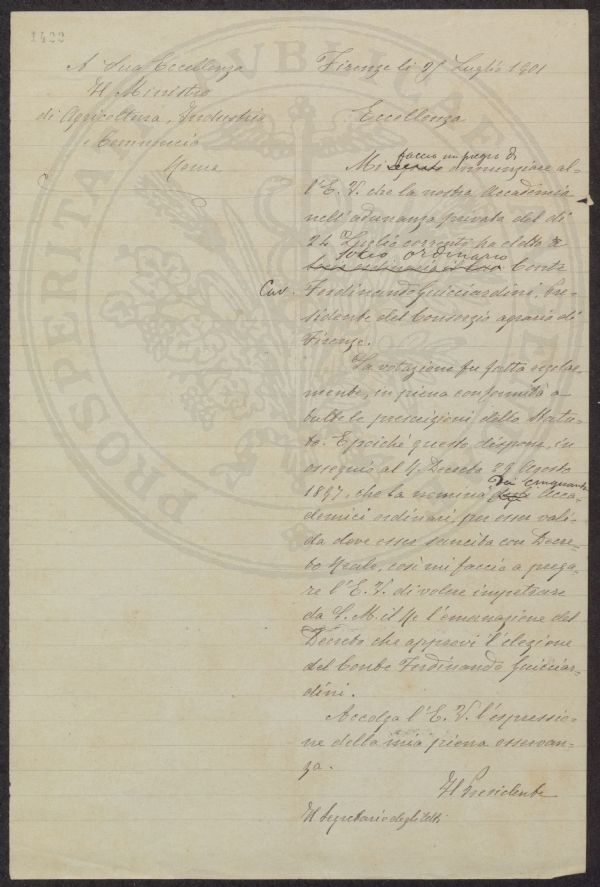 1422
A Sua Eccellenza
Il Ministro
di Agricoltura, Industria
e Commercio
Roma
Firenze li Luglio 1901
Eccellenza
Mi faccio un pregio di annunziare al-
l'E. V. che la nostra Accademia
nell'adunanza privata del dì
24 Luglio corrente ha eletto a
Socio ordinario
socio ordinario il Conte
Cav. Ferdinando Guicciardini, Pre-
sidente del Consorzio agrario di
Firenze.
La votazione fu fatta regolar-
mente, in piena conformità a
tutte le prescrizioni dello Statu-
to. E poichè questo dispone, in
ossequio al R. Decreto 29 Agosto
1897, che la nomina dei cinquanta Acca-
demici ordinari, per esser vali-
da deve esser sancita con Decre-
to Reale, così mi faccio a prega-
re l'E. V. di volere impetrare
da S. M. il Re l'emanazione del
Decreto che approvi l'elezione
del Conte Ferdinando Guicciar-
dini.
Accolga l'E. V. l'espressio-
ne della mia piena osservan-
za.
Il Presidente
Il Segretario degli Atti
PROSPERITATI PUBLICAE